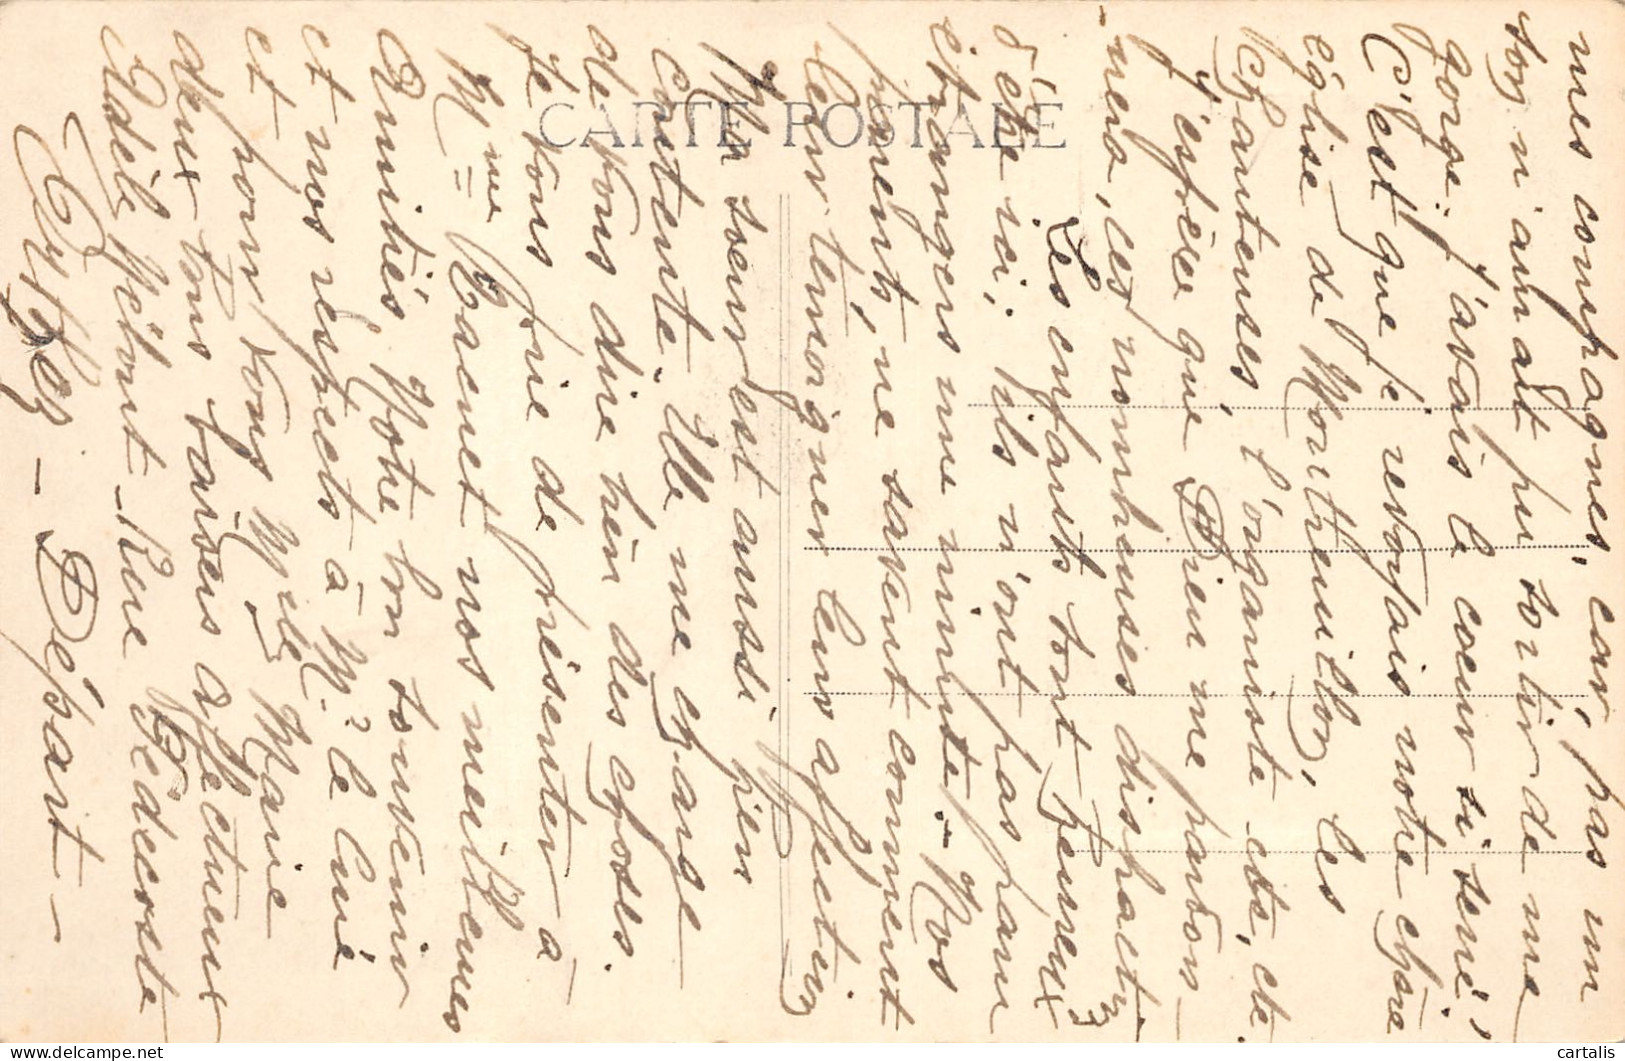 mes compagnes, car, pas un
son n'aurait pu sortir de ma
gorge: j'avais le coeur si serré!
C'est que je revoyais notre chère
église de Montreuillon, les
chanteuses, l'organiste etc, etc.
J'espère que Dieu me pardon-
nera, ces nombreuses distract
Les enfants sont heureux
d'être ici; ils n'ont pas paru
étrangers une minute. Nos
parents, ne savent comment
leur témoigner leurs affection
Ma soeur est aussi bien
contente. Elle me charge
de vous dire bien des choses.
Je vous prie de présenter à
Mme Bacuet nos meilleures
Amitiés, Notre bon souvenir
et nos respects à Mr le Curé
et pour vous Melle Marie
deux bons baisers affectueux
Adèle rue
Départ -
CARTE POSTALE
cartalis